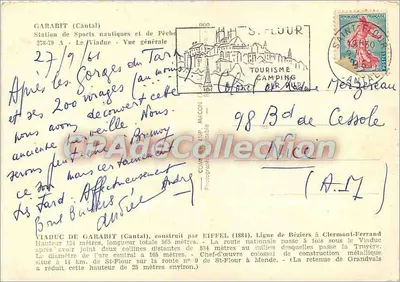 GARABIT (Cantal)
Station de Sports nautiques et de Pêche
276-79 A - Le Viaduc - Vue générale
27/9/61
Après les Gorges du Tarn
et ses 200 virages (au moins)
nous avons découvert cette
ancienne merveille. Nous
serons peut être à
ce soir mais certainement
tard. Affectueusement
Bons Baisers
André
ST FLOUR
TOURISME
CAMPING
SAINT FLOUR
CANTAL
et Madame
98 Bd de Cessole
Nice
(A.M)
CPADeCollection
VIADUC DE GARABIT (Cantal), construit par EIFFEL (1884). Ligne de Béziers à Clermont-Ferrand
Hauteur 124 mètres, longueur totale 565 mètres. - La route nationale passe 5 fois sous le Viaduc
après avoir joint deux collines distantes de 554 mètres au milieu desquelles passe la Truyère.
Le diamètre de l'arc central à 165 mètres. - Chef-d'œuvre colossal de construction métallique
situé à 14 km. de St-Flour sur la route n° 9 de St-Flour à Mende. - (La retenue de Grandvals
a réduit, cette hauteur de 25 mètres environ.)